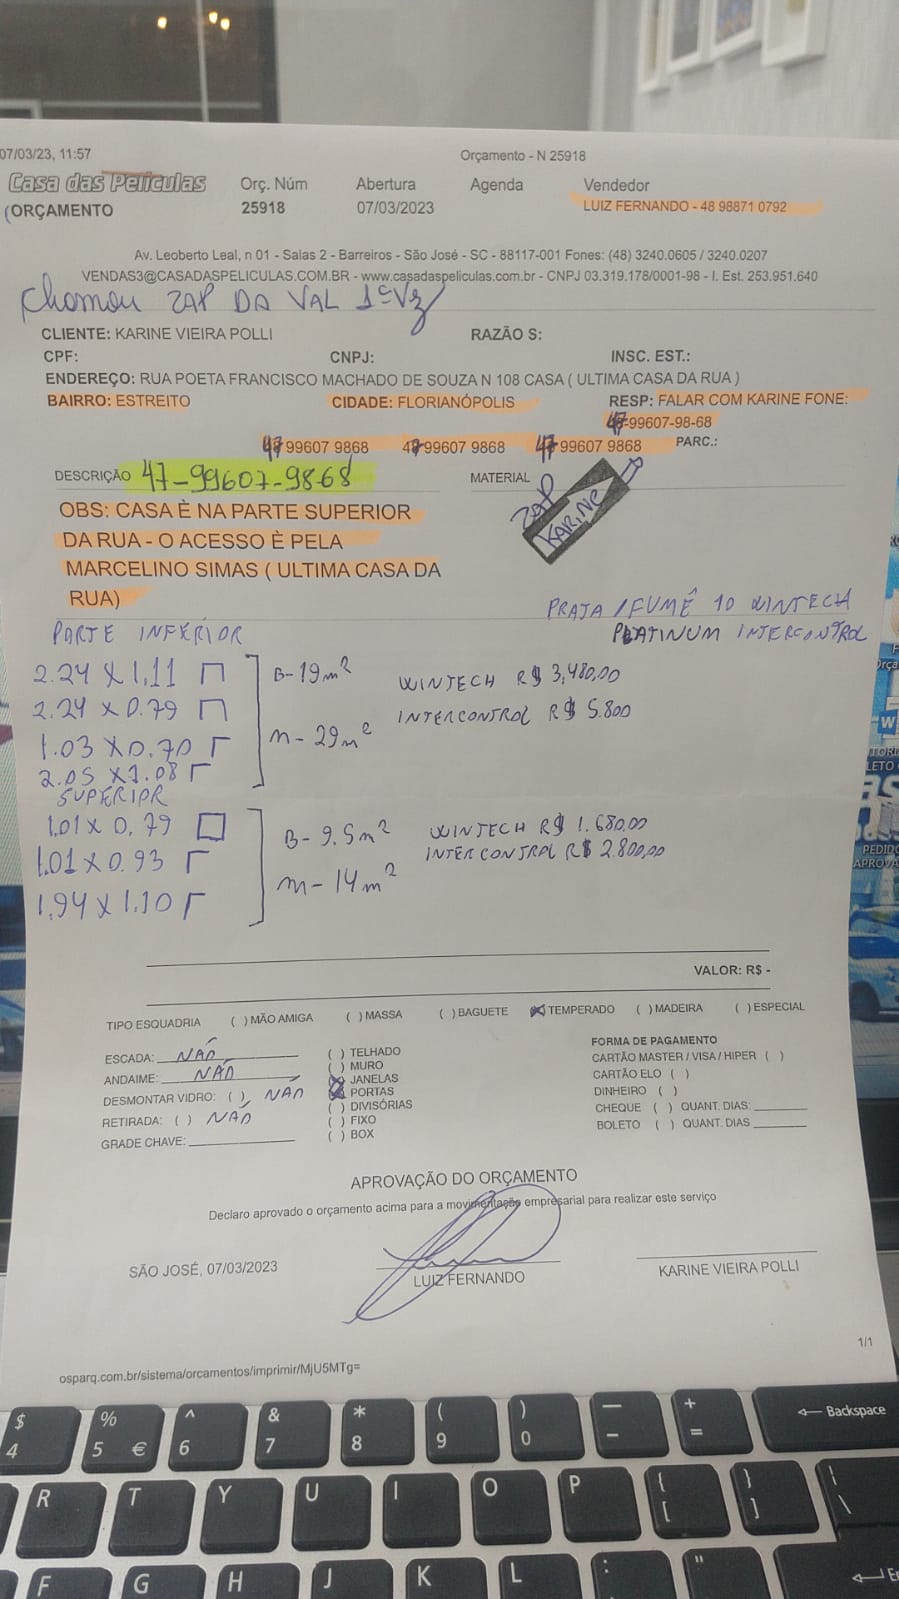 07/03/23, 11:57
Orçamento - N 25918
Casa das Películas
(ORÇAMENTO
Orç. Núm
25918
Abertura
07/03/2023
Agenda
Vendedor
LUIZ FERNANDO - 48 98871 0792
Av. Leoberto Leal, n 01 - Salas 2 - Barreiros - São José - SC - 88117-001 Fones: (48) 3240.0605 / 3240.0207
VENDAS3@CASADASPELICULAS.COM.BR - www.casadaspeliculas.com.br - CNPJ 03.319.178/0001-98 - I. Est. 253.951.640
Chamou ZAP DA VAL 1ª Vz
CLIENTE: KARINE VIEIRA POLLI
RAZÃO S:
CPF:
CNPJ:
INSC. EST.:
ENDEREÇO: RUA POETA FRANCISCO MACHADO DE SOUZA N 108 CASA ( ULTIMA CASA DA RUA )
BAIRRO: ESTREITO
CIDADE: FLORIANÓPOLIS
RESP: FALAR COM KARINE FONE:
47-99607-98-68
47 99607 9868
47-99607 9868
47 99607 9868
PARC.:
DESCRIÇÃO 47-99607-9868
MATERIAL
ZAP
KARINE
OBS: CASA È NA PARTE SUPERIOR
DA RUA - O ACESSO È PELA
MARCELINO SIMAS ( ULTIMA CASA DA
RUA)
PRATA / FUMÊ 10 WINTECH
PLATINUM INTERCONTROL
PARTE INFERIOR
2.24 X 1,11
2.24 X 0.79
1.03 X 0.70
2.05 X 1.08
B-19m²
M-29m²
WINTECH R$ 3,480,00
INTERCONTROL R$ 5.800
SUPERIOR
1.01 X 0,79
1.01 X 0.93
1,94 X 1.10
B-9.5m²
M-14m²
WINTECH R$ 1.680,00
INTERCONTROL R$ 2.800,00
VALOR: R$ -
TIPO ESQUADRIA ( ) MÃO AMIGA ( ) MASSA ( ) BAGUETE (X) TEMPERADO ( ) MADEIRA ( ) ESPECIAL
ESCADA: NÃO
ANDAIME: NÃO
DESMONTAR VIDRO: ( ) NÃO
RETIRADA: ( ) NÃO
GRADE CHAVE:
( ) TELHADO
( ) MURO
(X) JANELAS
(X) PORTAS
( ) DIVISÓRIAS
( ) FIXO
( ) BOX
FORMA DE PAGAMENTO
CARTÃO MASTER / VISA / HIPER ( )
CARTÃO ELO ( )
DINHEIRO ( )
CHEQUE ( ) QUANT. DIAS:
BOLETO ( ) QUANT. DIAS
APROVAÇÃO DO ORÇAMENTO
Declaro aprovado o orçamento acima para a movimentação empresarial para realizar este serviço
SÃO JOSÉ, 07/03/2023
LUIZ FERNANDO
KARINE VIEIRA POLLI
1/1
osparq.com.br/sistema/orcamentos/imprimir/MjU5MTg=
$ % ^ & * ( ) — + Backspace
4 5 € 6 7 8 9 0 - =
R T Y U I O P { [ } ] \
F G H J K L : "